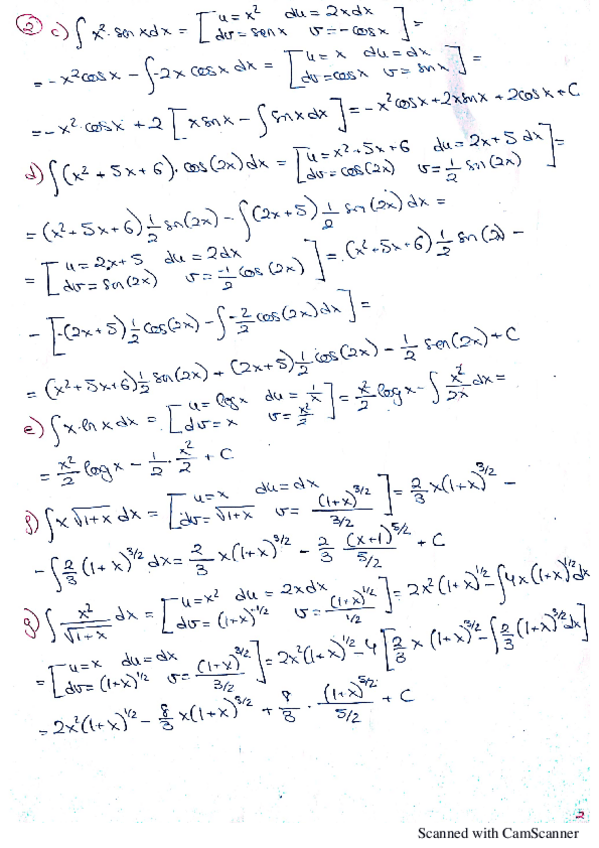 ② c) ∫ x²·sen x dx = [u = x² du = 2x dx / dv = sen x v = -cos x] =
= -x² cos x - ∫ -2x cos x dx = [u = x du = dx / dv = cos x v = sen x] =
= -x²·cos x + 2 [x sen x - ∫ sen x dx] = -x² cos x + 2x sen x + 2 cos x + C
d) ∫ (x² + 5x + 6)·cos(2x) dx = [u = x² + 5x + 6 du = 2x + 5 dx / dv = cos(2x) v = 1/2 sen(2x)] =
= (x² + 5x + 6) 1/2 sen(2x) - ∫ (2x + 5) 1/2 sen(2x) dx =
= [u = 2x + 5 du = 2dx / dv = sen(2x) v = -1/2 cos(2x)] = (x² + 5x + 6) 1/2 sen(2x) -
- [-(2x + 5) 1/2 cos(2x) - ∫ -2/2 cos(2x) dx] =
= (x² + 5x + 6) 1/2 sen(2x) + (2x + 5) 1/2 cos(2x) - 1/2 sen(2x) + C
e) ∫ x·ln x dx = [u = log x du = 1/x / dv = x v = x²/2] = x²/2 log x - ∫ x²/2x dx =
= x²/2 log x - 1/2 · x²/2 + C
f) ∫ x √(1+x) dx = [u = x du = dx / dv = √(1+x) v = (1+x)^3/2 / 3/2] = 2/3 x (1+x)^3/2 -
- ∫ 2/3 (1+x)^3/2 dx = 2/3 x (1+x)^3/2 - 2/3 (x+1)^5/2 / 5/2 + C
g) ∫ x²/√(1+x) dx = [u = x² du = 2x dx / dv = (1+x)^-1/2 v = (1+x)^1/2 / 1/2] = 2x² (1+x)^1/2 - ∫ 4x (1+x)^1/2 dx
= [u = x du = dx / dv = (1+x)^1/2 v = (1+x)^3/2 / 3/2] = 2x² (1+x)^1/2 - 4 [2/3 x (1+x)^3/2 - ∫ 2/3 (1+x)^3/2 dx]
= 2x² (1+x)^1/2 - 8/3 x (1+x)^3/2 + 8/3 · (1+x)^5/2 / 5/2 + C
2
Scanned with CamScanner